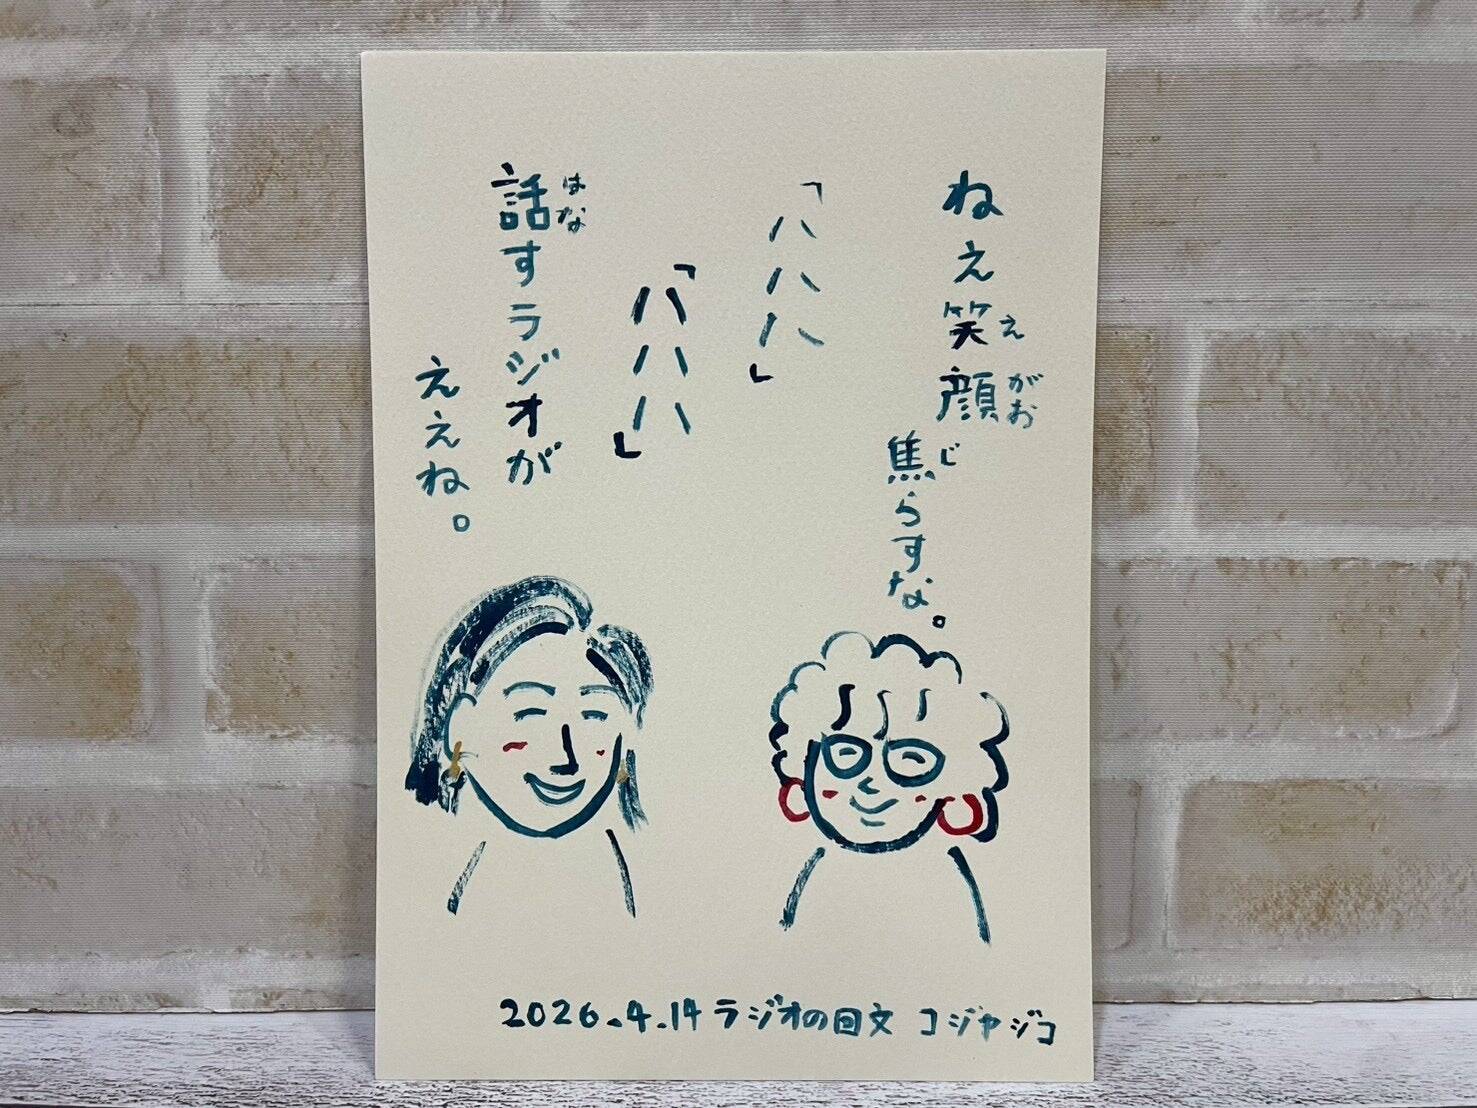 ねえ笑顔
えがお
焦らすな。
じ
「ハハハ」
「ハハハ」
話すラジオが
はな
ええね。
2026.4.14 ラジオの回文 コジヤジコ